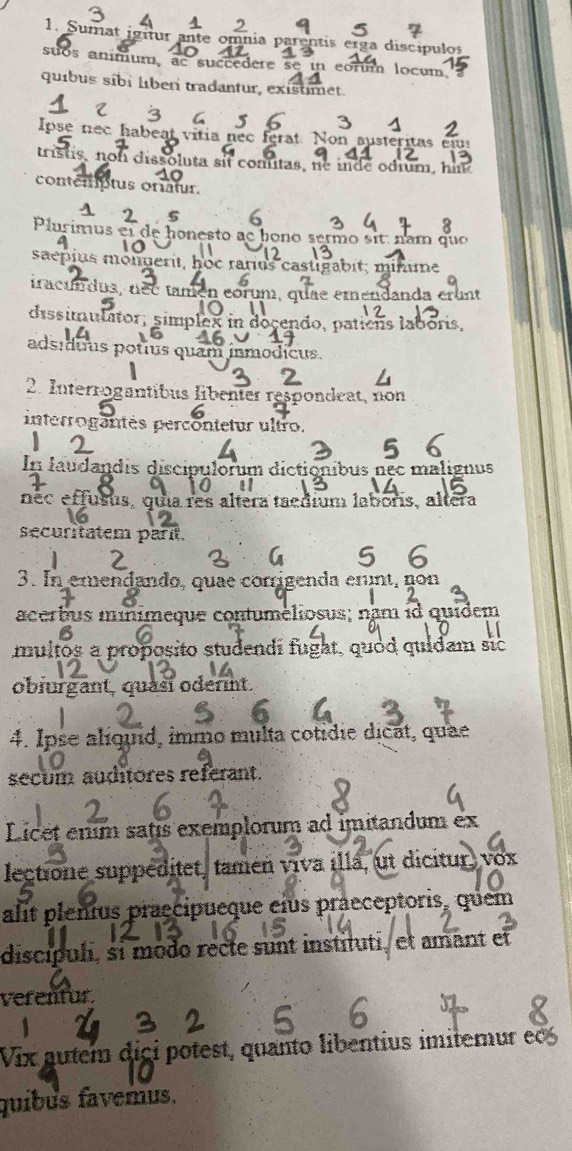 1. Sumat igitur ante omnia parentis erga discipulos
suos animum, ac succedere se in eorum locum, a
quibus sibi liberi tradantur, existimet.
Ipse nec habeat vitia nec ferat. Non austeritas eius
tristis, non dissoluta sit comitas, ne inde odium, hinc
contemptus oriatur.
Plurimus ei de honesto ac bono sermo sit: nam quo
saepius monuerit, hoc rarius castigabit; minime
iracundus, nec tamen eorum, quae emendanda erunt
dissimulator, simplex in docendo, patiens laboris,
adsiduus potius quam inmodicus.
2. Interrogantibus libenter respondeat, non
interrogantes percontetur ultro.
In laudandis discipulorum dictionibus nec malignus
nec effusus, quia res altera taedium laboris, altera
securitatem parit.
3. In emendando, quae corrigenda erunt, non
acerbus minimeque contumeliosus; nam id quidem
multos a proposito studendi fugat, quod quidam sic
obiurgant, quasi oderint.
4. Ipse aliquid, immo multa cotidie dicat, quae
secum auditores referant.
Licet enim satis exemplorum ad imitandum ex
lectione suppeditet, tamen viva illa, ut dicitur, vox
alit plenius praecipueque eius praeceptoris, quem
discipuli, si modo recte sunt instituti, et amant et
verentur.
Vix autem dici potest, quanto libentius imitemur eos
quibus favemus.